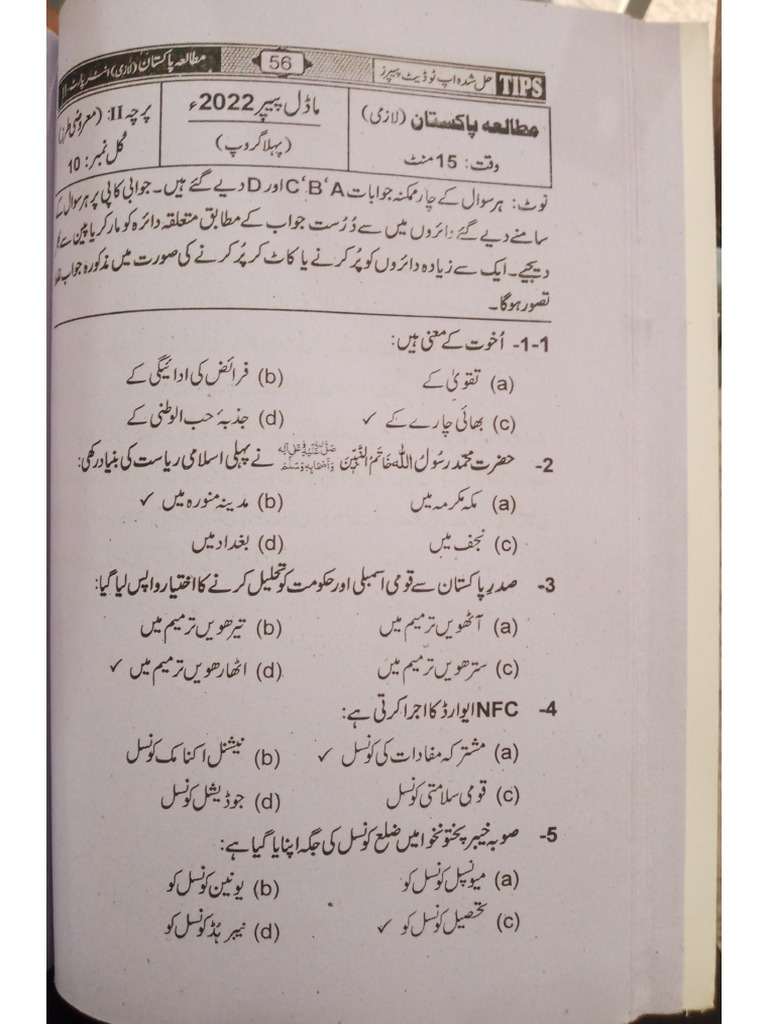 TIPS حل شدہ اپ ٹو ڈیٹ پیپرز 56 مطالعہ پاکستان (لازمی) انٹر پارٹ-II
مطالعہ پاکستان (لازمی) ماڈل پیپر 2022ء پرچہ II: (معروضی طرز)
وقت: 15 منٹ (پہلا گروپ) کُل نمبر: 10
نوٹ: ہر سوال کے چار ممکنہ جوابات A‘ B‘ C اور D دیے گئے ہیں۔ جوابی کاپی پر ہر سوال کے
سامنے دیے گئے دائروں میں سے دُرُست جواب کے مطابق متعلقہ دائرہ کو مارکر یا پین سے
دیجیے۔ ایک سے زیادہ دائروں کو پُر کرنے یا کاٹ کر پُر کرنے کی صورت میں مذکورہ جواب
تصور ہوگا۔
1-1- اُخوت کے معنی ہیں:
(a) تقویٰ کے (b) فرائض کی ادائیگی کے
(c) بھائی چارے کے ✓ (d) جذبۂ حب الوطنی کے
2- حضرت محمد رسولُ اللہ خاتم النَّبِیّٖن صَلَّی اللہُ عَلَیْہِ وَعَلٰی آلِہٖ وَاَصْحَابِہٖ وَسَلَّمَ نے پہلی اسلامی ریاست کی بنیاد رکھی:
(a) مکہ مکرمہ میں (b) مدینہ منورہ میں ✓
(c) نجف میں (d) بغداد میں
3- صدرِ پاکستان سے قومی اسمبلی اور حکومت کو تحلیل کرنے کا اختیار واپس لیا گیا:
(a) آٹھویں ترمیم میں (b) تیرھویں ترمیم میں
(c) سترھویں ترمیم میں (d) اٹھارھویں ترمیم میں ✓
4- NFC ایوارڈ کا اجرا کرتی ہے:
(a) مشترکہ مفادات کی کونسل ✓ (b) نیشنل اکنامک کونسل
(c) قومی سلامتی کونسل (d) جوڈیشل کونسل
5- صوبہ خیبر پختونخوا میں ضلع کونسل کی جگہ اپنایا گیا ہے:
(a) میونسپل کونسل کو (b) یونین کونسل کو
(c) تحصیل کونسل کو ✓ (d) نیبر ہُڈ کونسل کو